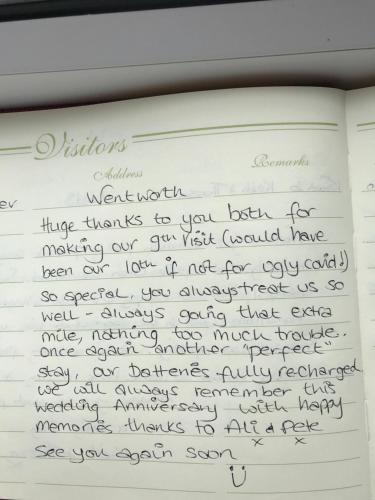 Visitors
Address Remarks
ev Wentworth
Huge thanks to you both for
making our 9th visit (would have
been our 10th if not for ugly covid!)
so special, you always treat us so
well - always going that extra
mile, nothing too much trouble.
once again another "perfect"
stay, our batteries fully recharged
we will always remember this
wedding Anniversary with happy
memories thanks to Ali & Pete
x x
See you again soon